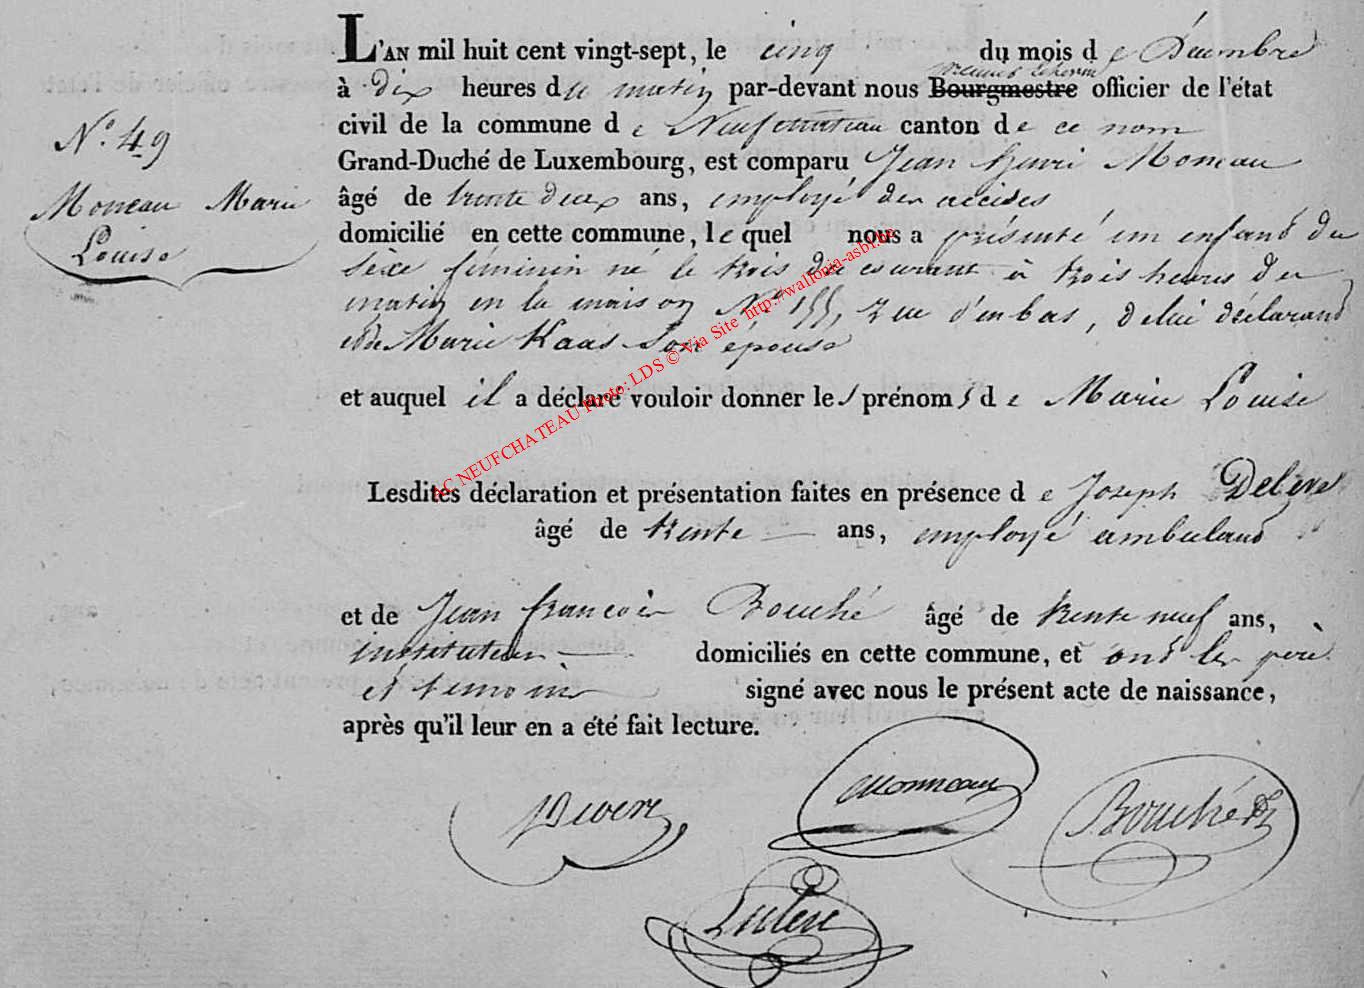 L'AN mil huit cent vingt-sept, le cinq du mois de Décembre
à dix heures du matin par-devant nous Bourgmestre officier de l'état
civil de la commune de Neufchateau canton de ce nom
Grand-Duché de Luxembourg, est comparu Jean henri Moneau
âgé de trente deux ans, employé des accises
domicilié en cette commune, lequel nous a présenté un enfand du
sexe féminin né le trois du courant à trois heures du
matin en la maison N° 155, rue d'en bas, de lui déclarand
et de Marie Kaas son épouse
et auquel il a déclaré vouloir donner les prénoms de Marie Louise
Lesdites déclaration et présentation faites en présence de Joseph
âgé de trente ans, employé ambuland
et de Jean françois Bouché âgé de trente neuf ans,
instituteur domiciliés en cette commune, et ond les père
et temoins signé avec nous le présent acte de naissance,
après qu'il leur en a été fait lecture.
N° 49
Moneau Marie
Louise
AC NEUFCHATEAU Photo: LDS © Via Site http://wallonia-asbl.be
Monneau
Bouché